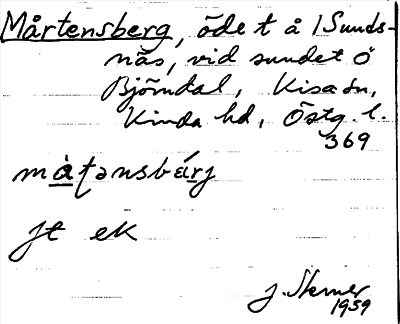 Mårtensberg, öde t å 1 Sunds-
näs, vid sundet ö
Björndal, Kisa sn,
Kinda hd, Östg. l.
369
må̀ʈənsbárj
jt ek
J. Skerner
1959